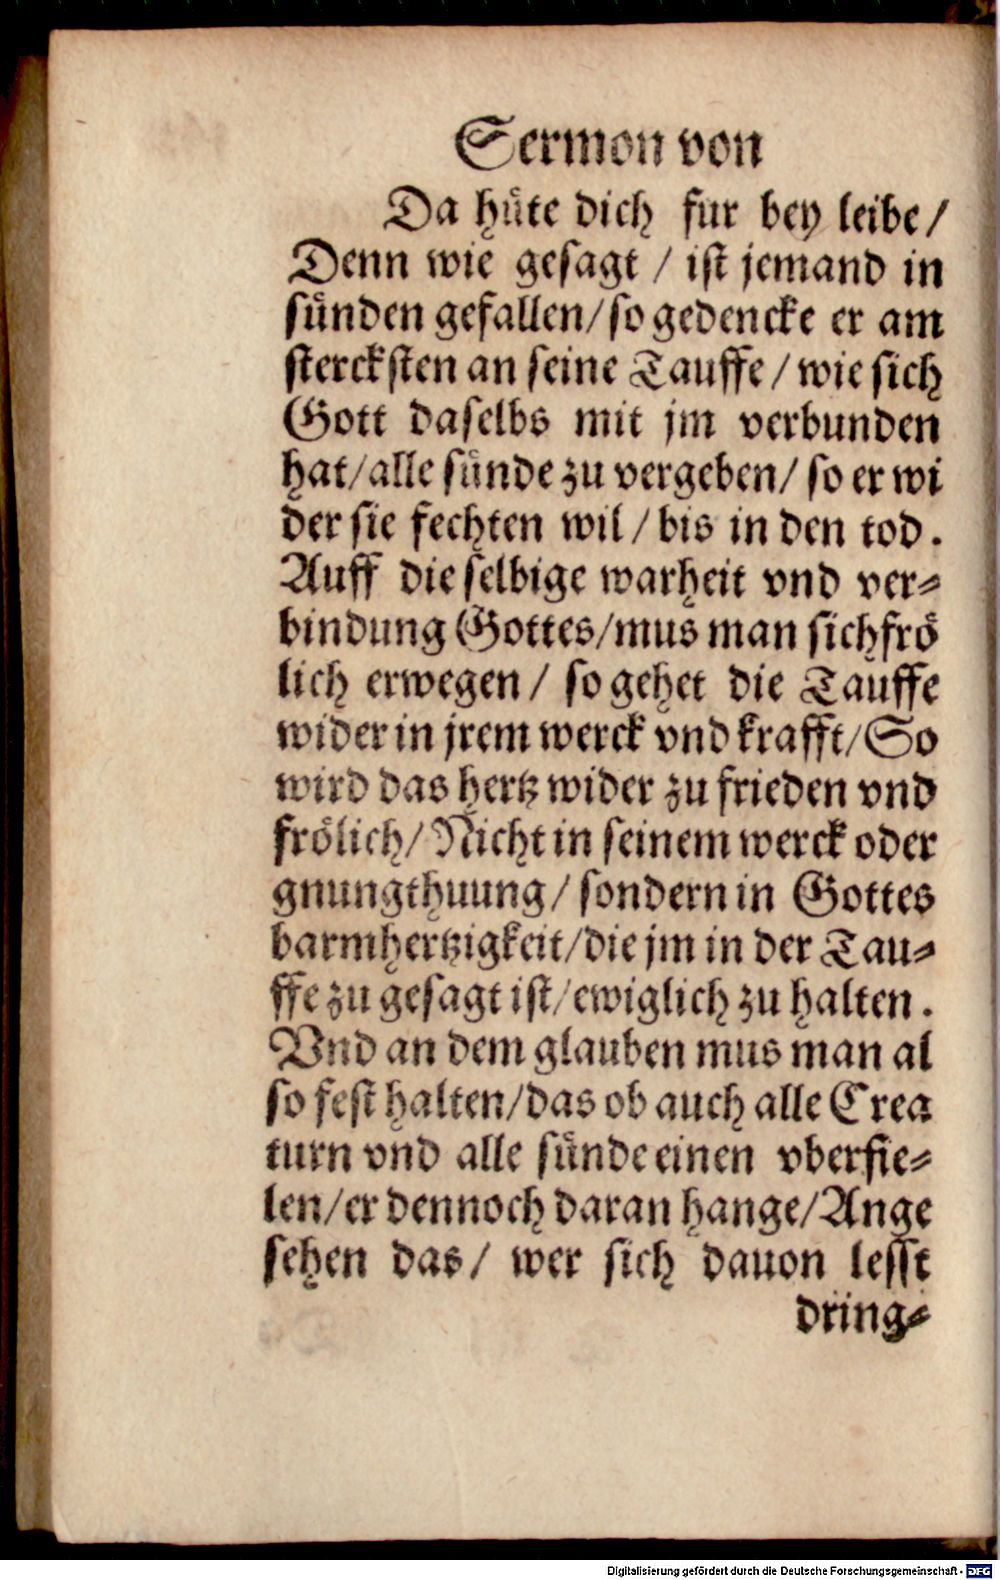 Sermon von
Da hüte dich fur bey leibe/
Denn wie gesagt / ist jemand in
sünden gefallen/so gedencke er am
stercksten an seine Tauffe/wie sich
Gott daselbs mit jm verbunden
hat/alle sünde zu vergeben/so er wi
der sie fechten wil/bis in den tod.
Auff die selbige warheit vnd ver-
bindung Gottes/mus man sich frö
lich erwegen/ so gehet die Tauffe
wider in jrem werck vnd krafft/So
wird das hertz wider zu frieden vnd
frölich/Nicht in seinem werck oder
gnungthuung/sondern in Gottes
barmhertzigkeit/die jm in der Tau-
ffe zu gesagt ist/ewiglich zu halten.
Vnd an dem glauben mus man al
so fest halten/das ob auch alle Crea
turn vnd alle sünde einen vberfie-
len/er dennoch daran hange/Ange
sehen das/ wer sich dauon lesst
dring-
Digitalisierung gefördert durch die Deutsche Forschungsgemeinschaft - DFG